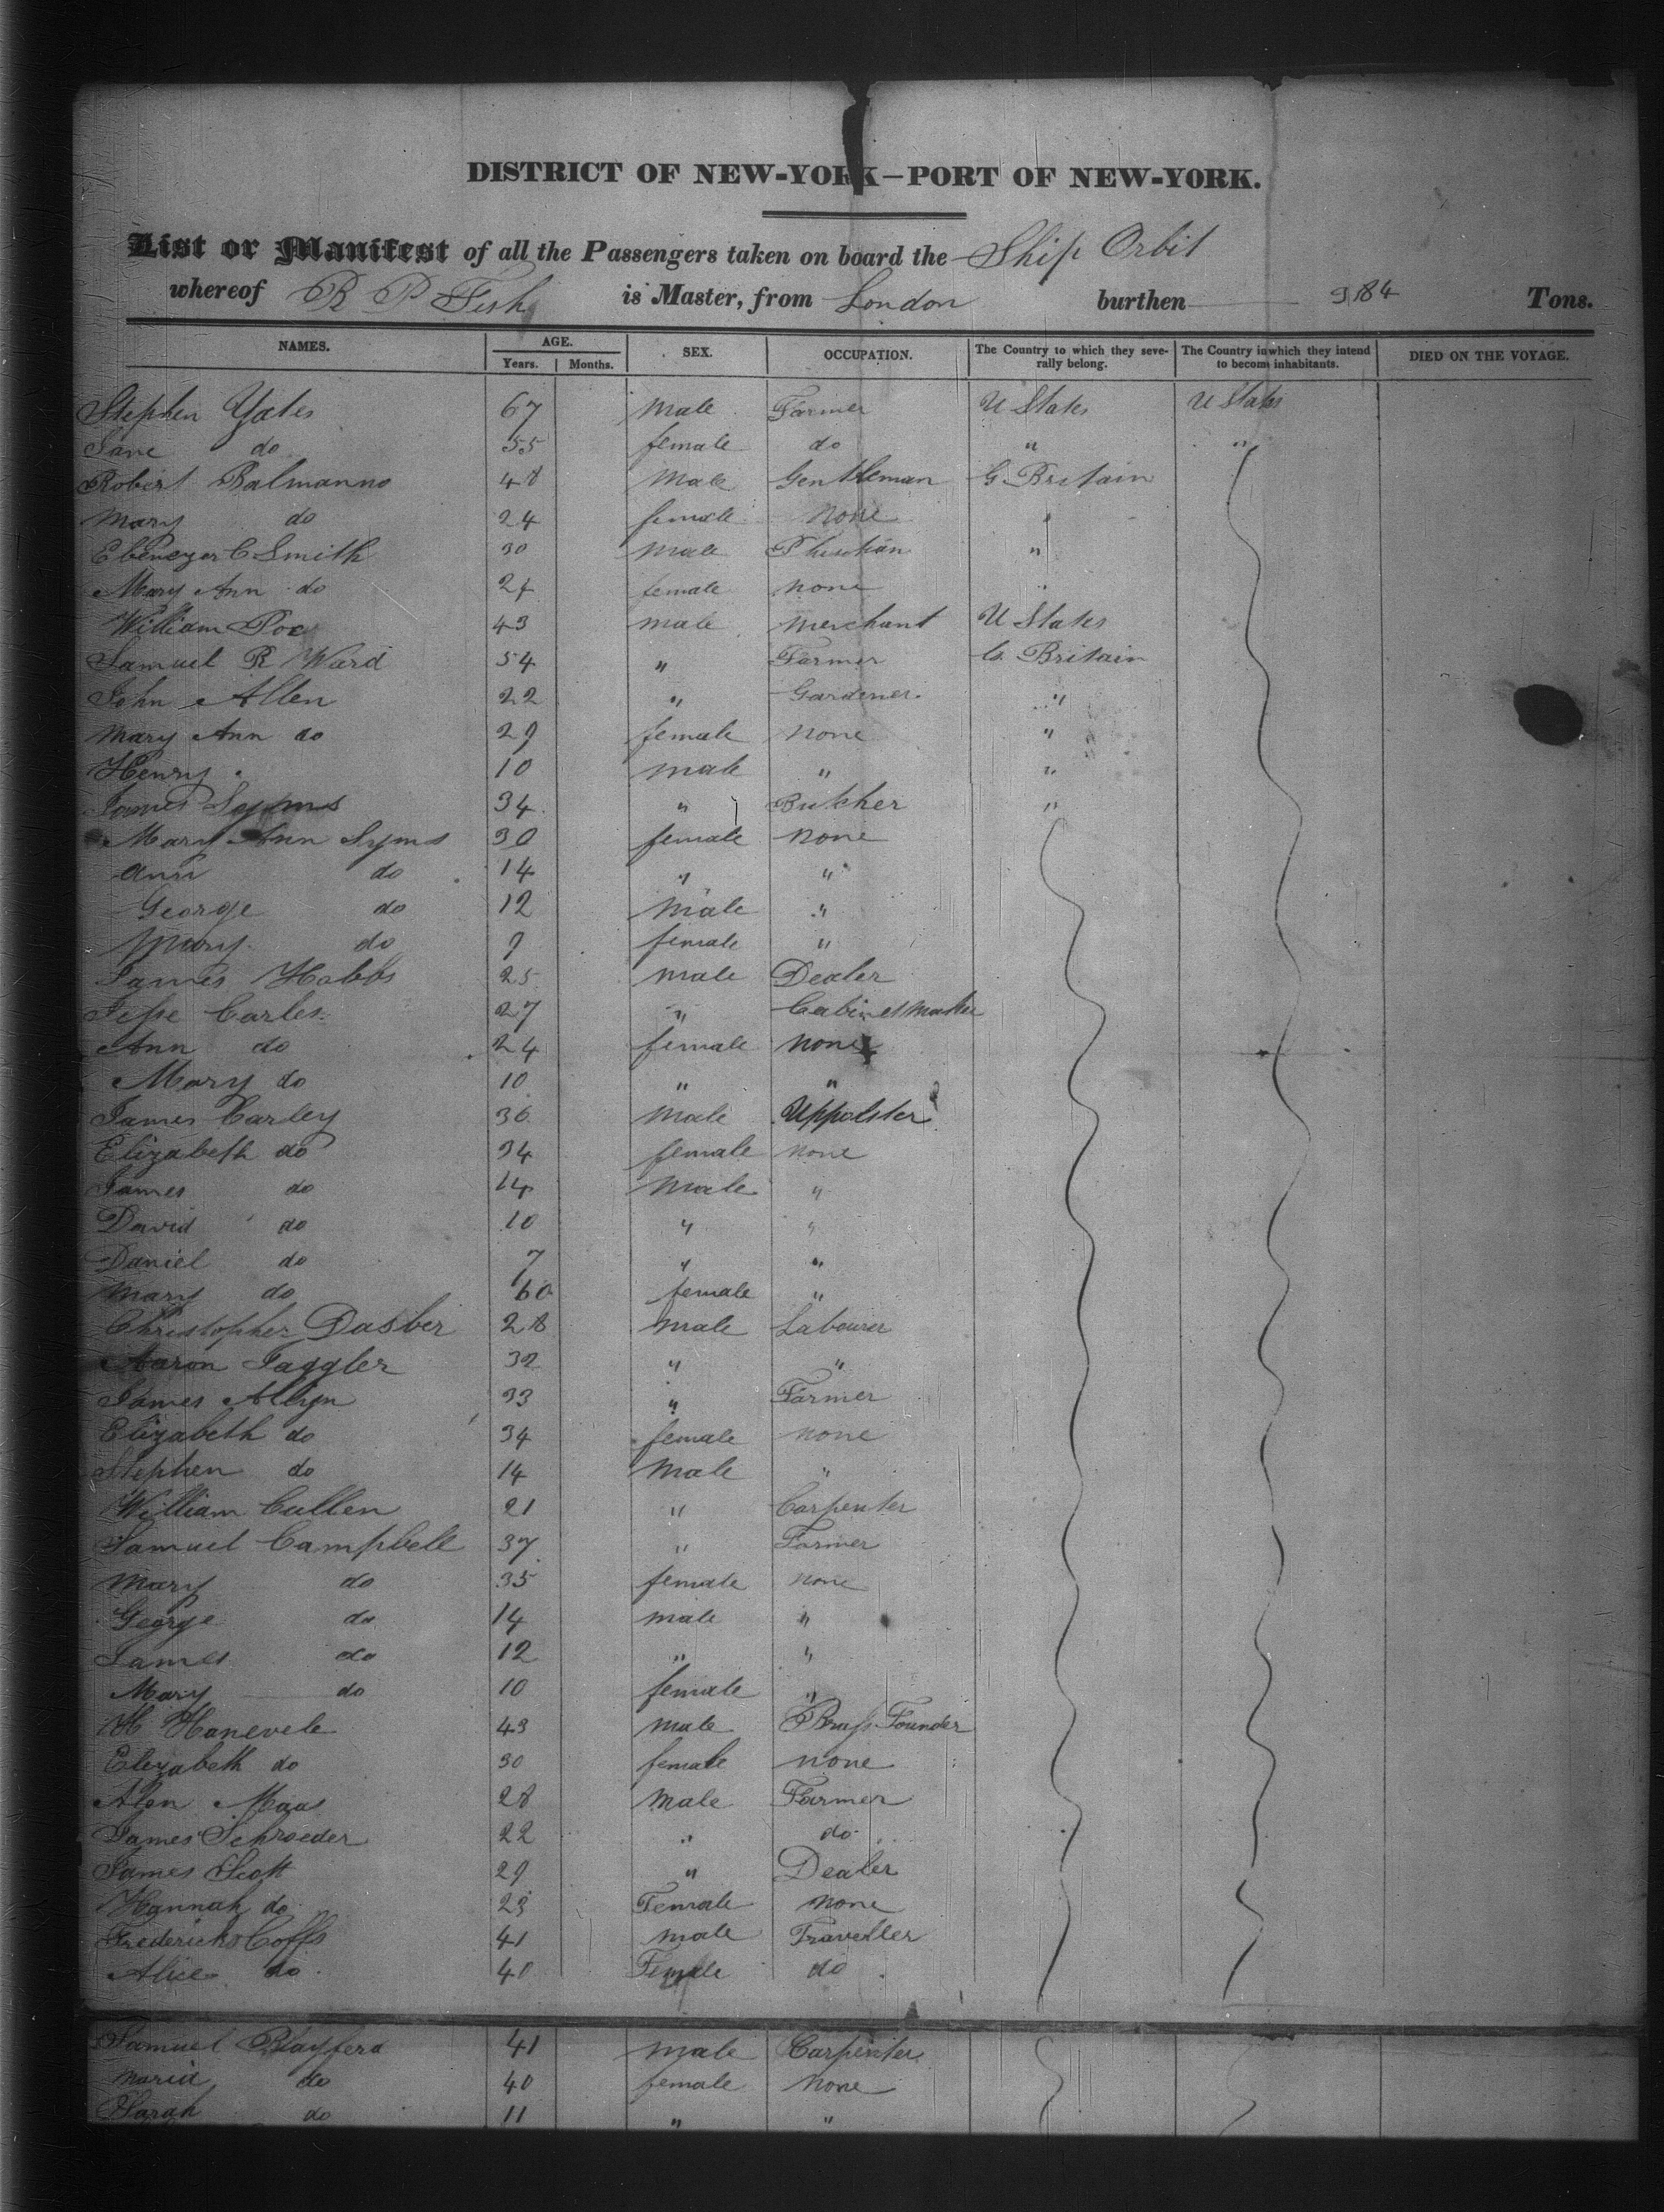 DISTRICT OF NEW-YORK—PORT OF NEW-YORK.
List or Manifest of all the Passengers taken on board the Ship Orbit
whereof R P Fish is Master, from London burthen 384 Tons.
NAMES. AGE. Years. Months. SEX. OCCUPATION. The Country to which they severally belong. The Country in which they intend to become inhabitants. DIED ON THE VOYAGE.
Stephen Yates 67 Male Farmer U States U States
Jane do 55 female do " "
Robert Balmanno 48 Male Gentleman G. Britain
Mary do 24 female None "
Ebenezer C Smith 30 Male "
Mary Ann do 24 female none "
William Poe 43 male merchant U States
Samuel R Ward 54 " Farmer G. Britain
John Allen 22 " Gardener "
Mary Ann do 29 female None "
Henry 10 male " "
James Syms 34 " Butcher "
Mary Ann Syms 30 female none
Ann do 14 " "
George do 12 Male "
Mary do 9 female "
James Hobbs 25 male Dealer
Jesse Carles 27 " Cabinet Maker
Ann do 24 female None
Mary do 10 " "
James Carley 36 Male Uppolster
Elizabeth do 34 female none
James do 14 Male "
David do 10 " "
Daniel do 7 " "
Mary do 60 female "
Christopher Dasber 28 Male Labourer
Aaron Taggler 32 " "
James Allyn 33 " Farmer
Elizabeth do 34 female none
Stephen do 14 Male "
William Cullen 21 " Carpenter
Samuel Campbell 37 " Farmer
Mary do 35 female none
George do 14 male "
James do 12 " "
Mary do 10 female "
H Hanevele 43 male Brass Founder
Elezabeth do 30 female none
Alen Maas 28 Male Farmer
James Schroeder 22 " do
James Scott 29 " Dealer
Hannah do 23 Female None
Frederick Coffs 41 male Traveller
Alice do 40 Female do
Samuel Blayferd 41 Male Carpenter
Maria do 40 female None
Sarah do 11 " "